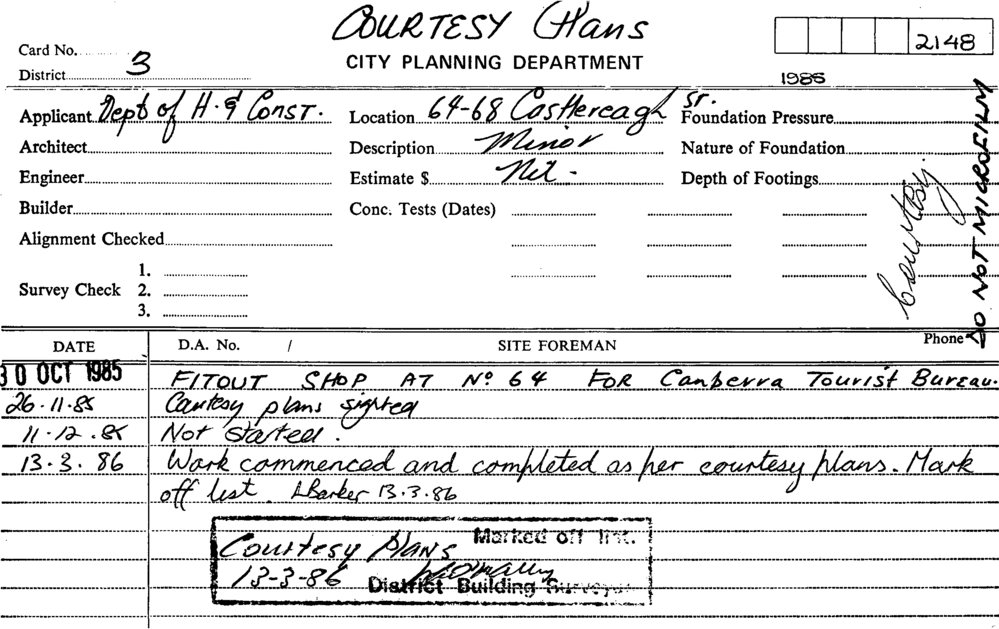 COURTESY Plans
Card No. 2148
CITY PLANNING DEPARTMENT
District 3 1985
Applicant Dept of H. & Const. Location 64-68 Castlereagh St. Foundation Pressure
Architect Description Minor Nature of Foundation
Engineer Estimate $ Nil - Depth of Footings
Builder Conc. Tests (Dates)
Alignment Checked
Courtesy.
DO NOT MICROFILM
1.
Survey Check 2.
3.
DATE D.A. No. / SITE FOREMAN Phone
30 OCT 1985 FITOUT SHOP AT No 64 FOR Canberra Tourist Bureau.
26.11.85 Courtesy plans sighted
11.12.85 Not Started.
13.3.86 Work commenced and completed as per courtesy plans. Mark
off list. LBarker 13.3.86
Courtesy Plans Marked off list.
13-3-86 District Building Surveyor